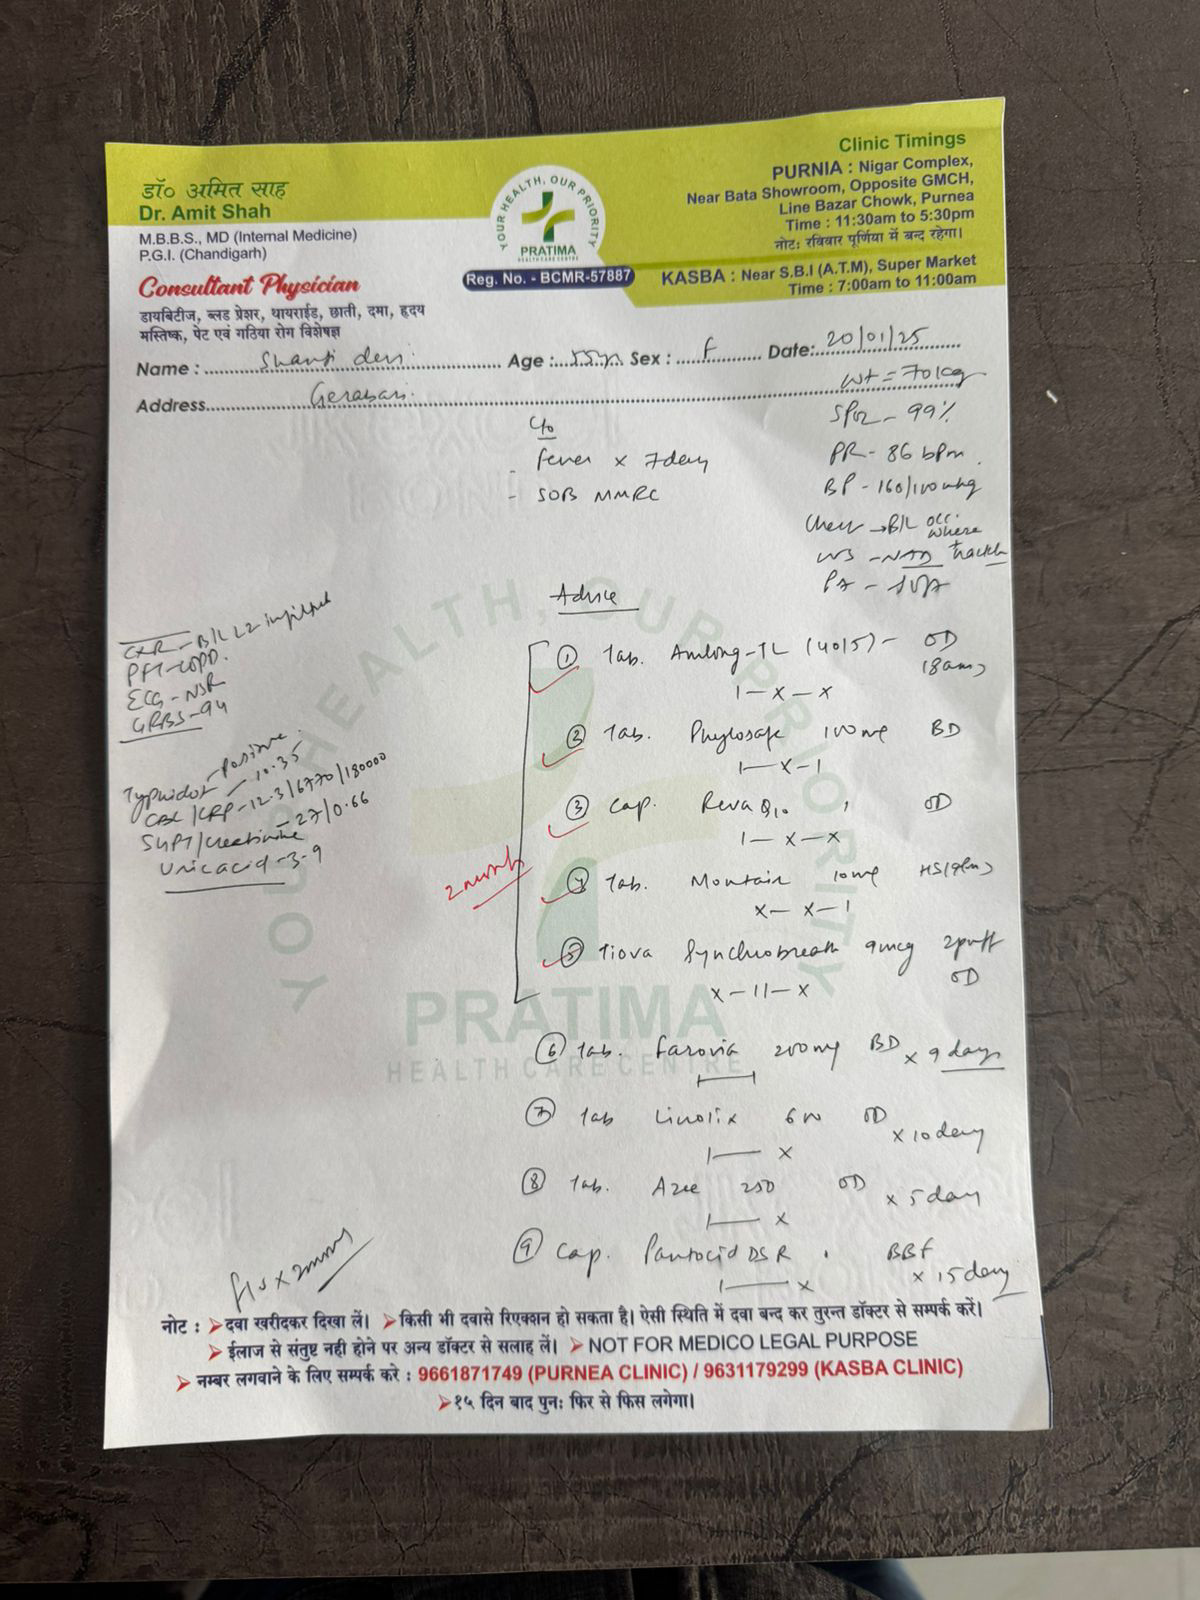 डॉ० अमित साह
Dr. Amit Shah
M.B.B.S., MD (Internal Medicine)
P.G.I. (Chandigarh)
Consultant Physician
डायबिटीज, ब्लड प्रेशर, थायराईड, छाती, दमा, हृदय
मस्तिष्क, पेट एवं गठिया रोग विशेषज्ञ
YOUR HEALTH, OUR PRIORITY
PRATIMA
HEALTH CARE CENTRE
Reg. No. - BCMR-57887
Clinic Timings
PURNIA : Nigar Complex,
Near Bata Showroom, Opposite GMCH,
Line Bazar Chowk, Purnea
Time : 11:30am to 5:30pm
नोट: रविवार पूर्णिया में बन्द रहेगा।
KASBA : Near S.B.I (A.T.M), Super Market
Time : 7:00am to 11:00am
Name : Shanti devi Age : 55yr Sex : F Date: 20/01/25
Address Gerabari
Wt = 70kg
SPO2 - 99%
PR - 86 bpm
BP - 160/100mmhg
Chest → B/L occ.
P/A - soft
C/o
- fever x 7day
- SOB MMRC
Advice
CXR - B/L LZ
PFT - COPD
ECG - NSR
GRBS - 94
Typhidot - Positive
CBC/CRP - 12.3/6770/180000
10.35
SGPT/creatinine - 27/0.66
Uric acid - 3.9
① Tab. Amlong-TL (40/5) - OD
(8am)
1 - x - x
② Tab. Phylosafe 100mg BD
1 - x - 1
③ Cap. Reva Q10 1 OD
1 - x - x
④ Tab. Montair 10mg HS(9pm)
x - x - 1
⑤ Tiova Synchrobreath 9mcg 2puff
OD
x - 11 - x
2 month
⑥ Tab. Farovia 200mg BD x 9 days
⑦ Tab Linolix 600 OD x 10 day
1 — x
⑧ Tab. Azee 250 OD x 5 day
1 — x
⑨ Cap. Pantocid DSR BBF
x 15 day
1 — x
YOUR HEALTH, OUR PRIORITY
PRATIMA
HEALTH CARE CENTRE
नोट : दवा खरीदकर दिखा लें। किसी भी दवासे रिएक्शन हो सकता है। ऐसी स्थिति में दवा बन्द कर तुरन्त डॉक्टर से सम्पर्क करें।
ईलाज से संतुष्ट नही होने पर अन्य डॉक्टर से सलाह लें। NOT FOR MEDICO LEGAL PURPOSE
नम्बर लगवाने के लिए सम्पर्क करे : 9661871749 (PURNEA CLINIC) / 9631179299 (KASBA CLINIC)
१५ दिन बाद पुनः फिर से फिस लगेगा।